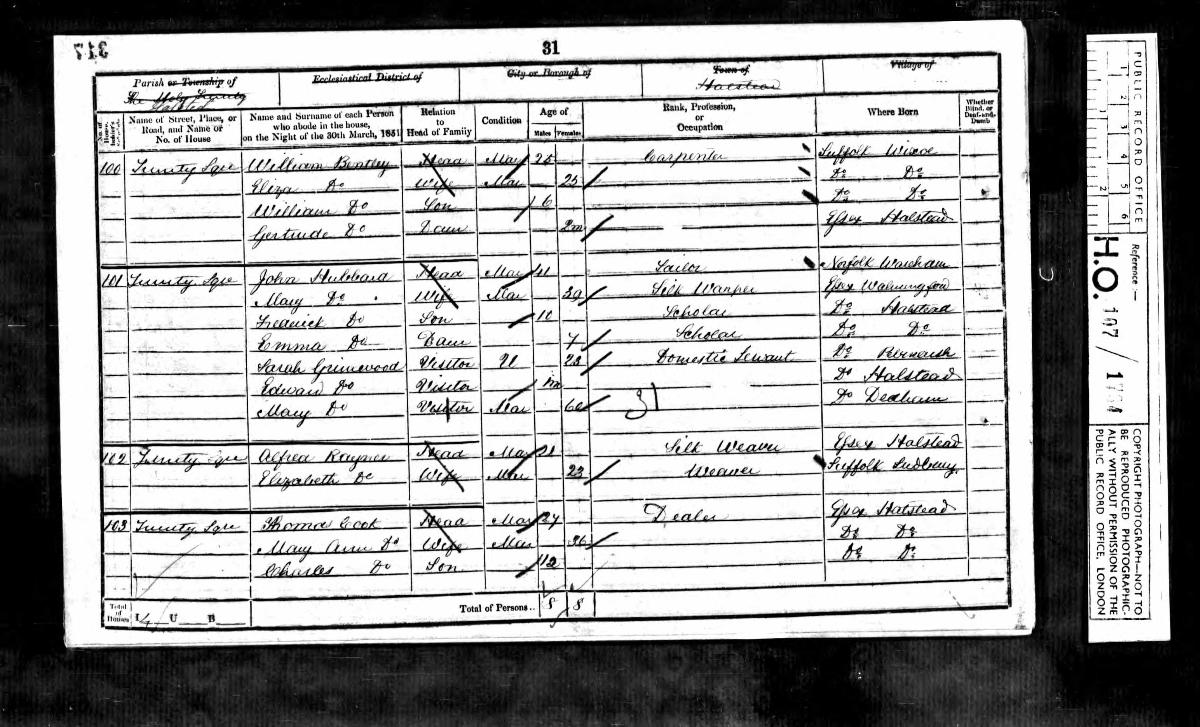 317
31
Parish or Township of
Ecclesiastical District of
City or Borough of
Town of
Village of
The Holy Trinity
Halsted
Halstead
No. of House-holder's Schedule
Name of Street, Place, or Road, and Name or No. of House
Name and Surname of each Person who abode in the house, on the Night of the 30th March, 1851
Relation to Head of Family
Condition
Age of
Males Females
Rank, Profession, or Occupation
Where Born
Whether Blind, or Deaf-and-Dumb
100 Trinity Sqre William Bentley Head Mar 25 Carpenter Suffolk Wixoe
Eliza Do Wife Mar 25 Do Do
William Do Son 6 Do Do
Gertrude Do Daur 2m Essex Halstead
101 Trinity Sqre John Hubbard Head Mar 41 Tailor Norfolk Wareham
Mary Do Wife Mar 39 Silk Warper Essex
Frederick Do Son 10 Scholar Do Halstead
Emma Do Daur 7 Scholar Do Do
Sarah Grimwood Visitor U 23 Domestic Servant Do Pebmarsh
Edward Do Visitor 1m Do Halstead
Mary Do Visitor Mar 60 Do Dedham
31
102 Trinity Sqre Alfred Rayner Head Mar 21 Silk Weaver Essex Halstead
Elizabeth Do Wife Mar 23 Weaver Suffolk Sudbury
103 Trinity Sqre Thomas Cook Head Mar 27 Dealer Essex Halstead
Mary Ann Do Wife Mar 36 Do Do
Charles Do Son 12 Do Do
Total of Houses I 4 U B
Total of Persons.. 8 8
PUBLIC RECORD OFFICE
1 2 3 4 5 6
1 2
Reference:-
H.O. 107 / 1784
COPYRIGHT PHOTOGRAPH—NOT TO
BE REPRODUCED PHOTOGRAPHIC-
ALLY WITHOUT PERMISSION OF THE
PUBLIC RECORD OFFICE, LONDON